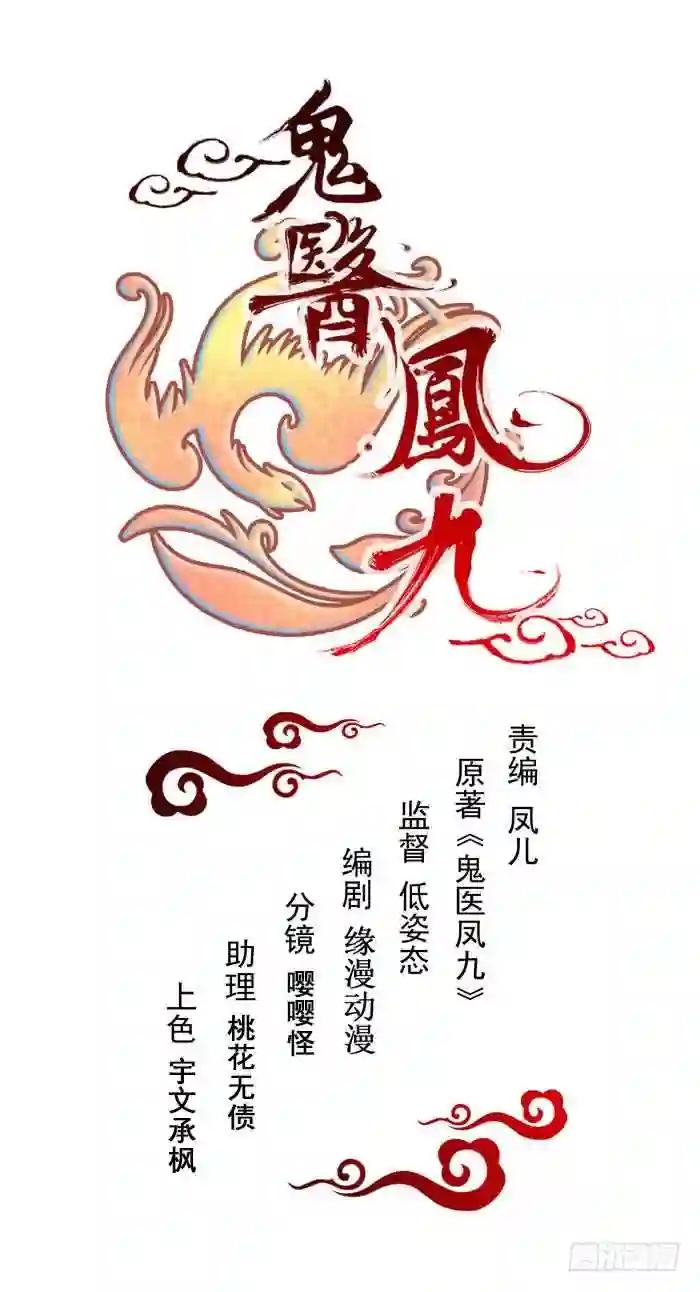 鬼
醫
鳳
九
责编 凤儿
原著《鬼医凤九》
监督 低姿态
编剧 缘漫动漫
分镜 嘤嘤怪
助理 桃花无债
上色 宇文承枫